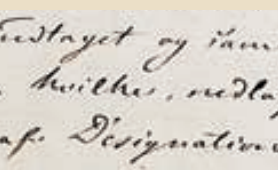 Indtaget og sam
hvilke, nedla
af Designation